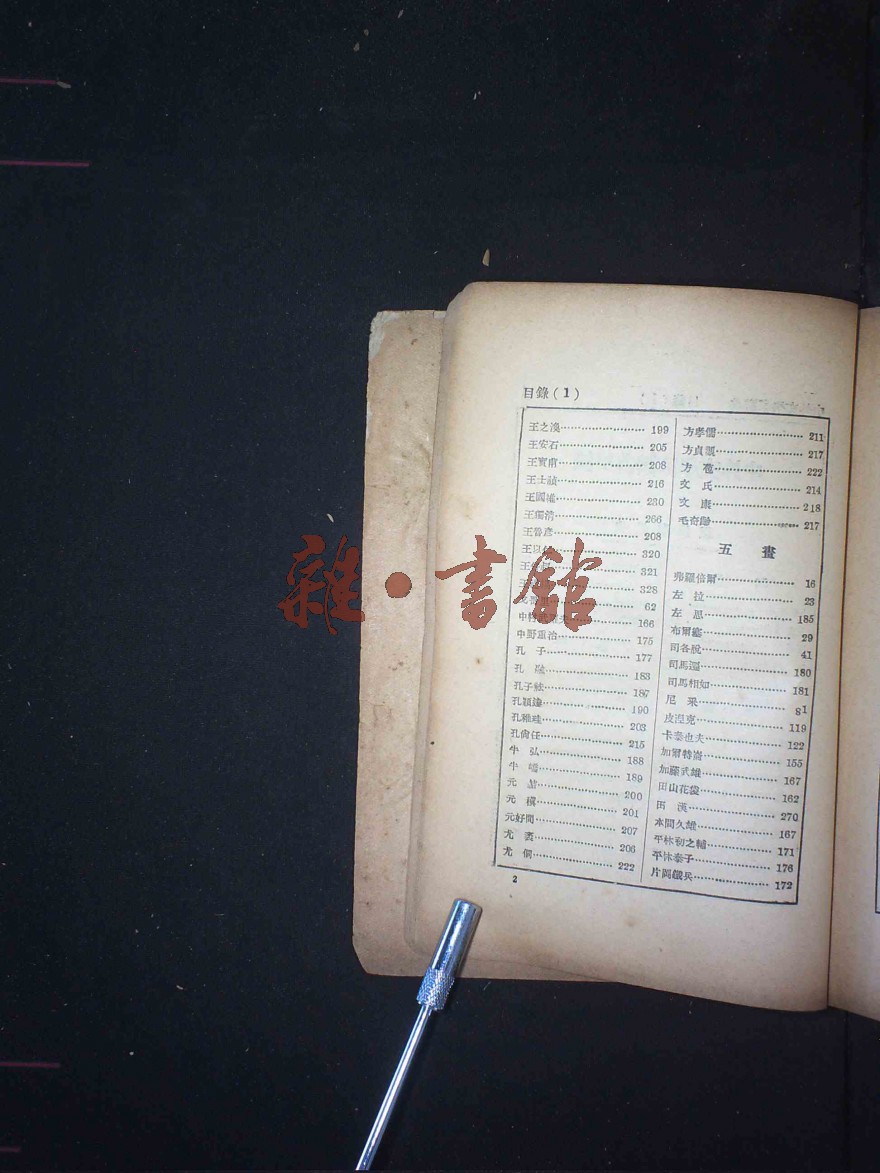 目錄(1)
王之渙 199
王安石 205
王實甫 208
王士禎 216
王國維 230
王獨清 266
王魯彥 208
王以仁 320
321
328
62
中野 166
中野重治 175
孔 子 177
孔 融 183
孔子祛 187
孔穎達 190
孔稚珪 203
孔尚任 215
牛 弘 188
牛 嶠 189
元 喆 200
元 稹 201
元好問 207
尤 袤 206
尤 侗 222
方孝儒 211
方貞觀 217
方 苞 222
文 氏 214
文 康 218
毛奇齡 217
五 畫
弗羅倍爾 16
左 拉 23
左 思 185
布爾塞 29
司各脫 41
司馬遷 180
司馬相如 181
尼 采 81
皮涅克 119
卡泰也夫 122
加爾特崙 155
加藤武雄 167
田山花袋 162
田 漢 270
本間久雄 167
平林初之輔 171
平林泰子 176
片岡鐵兵 172
2
雜·書館